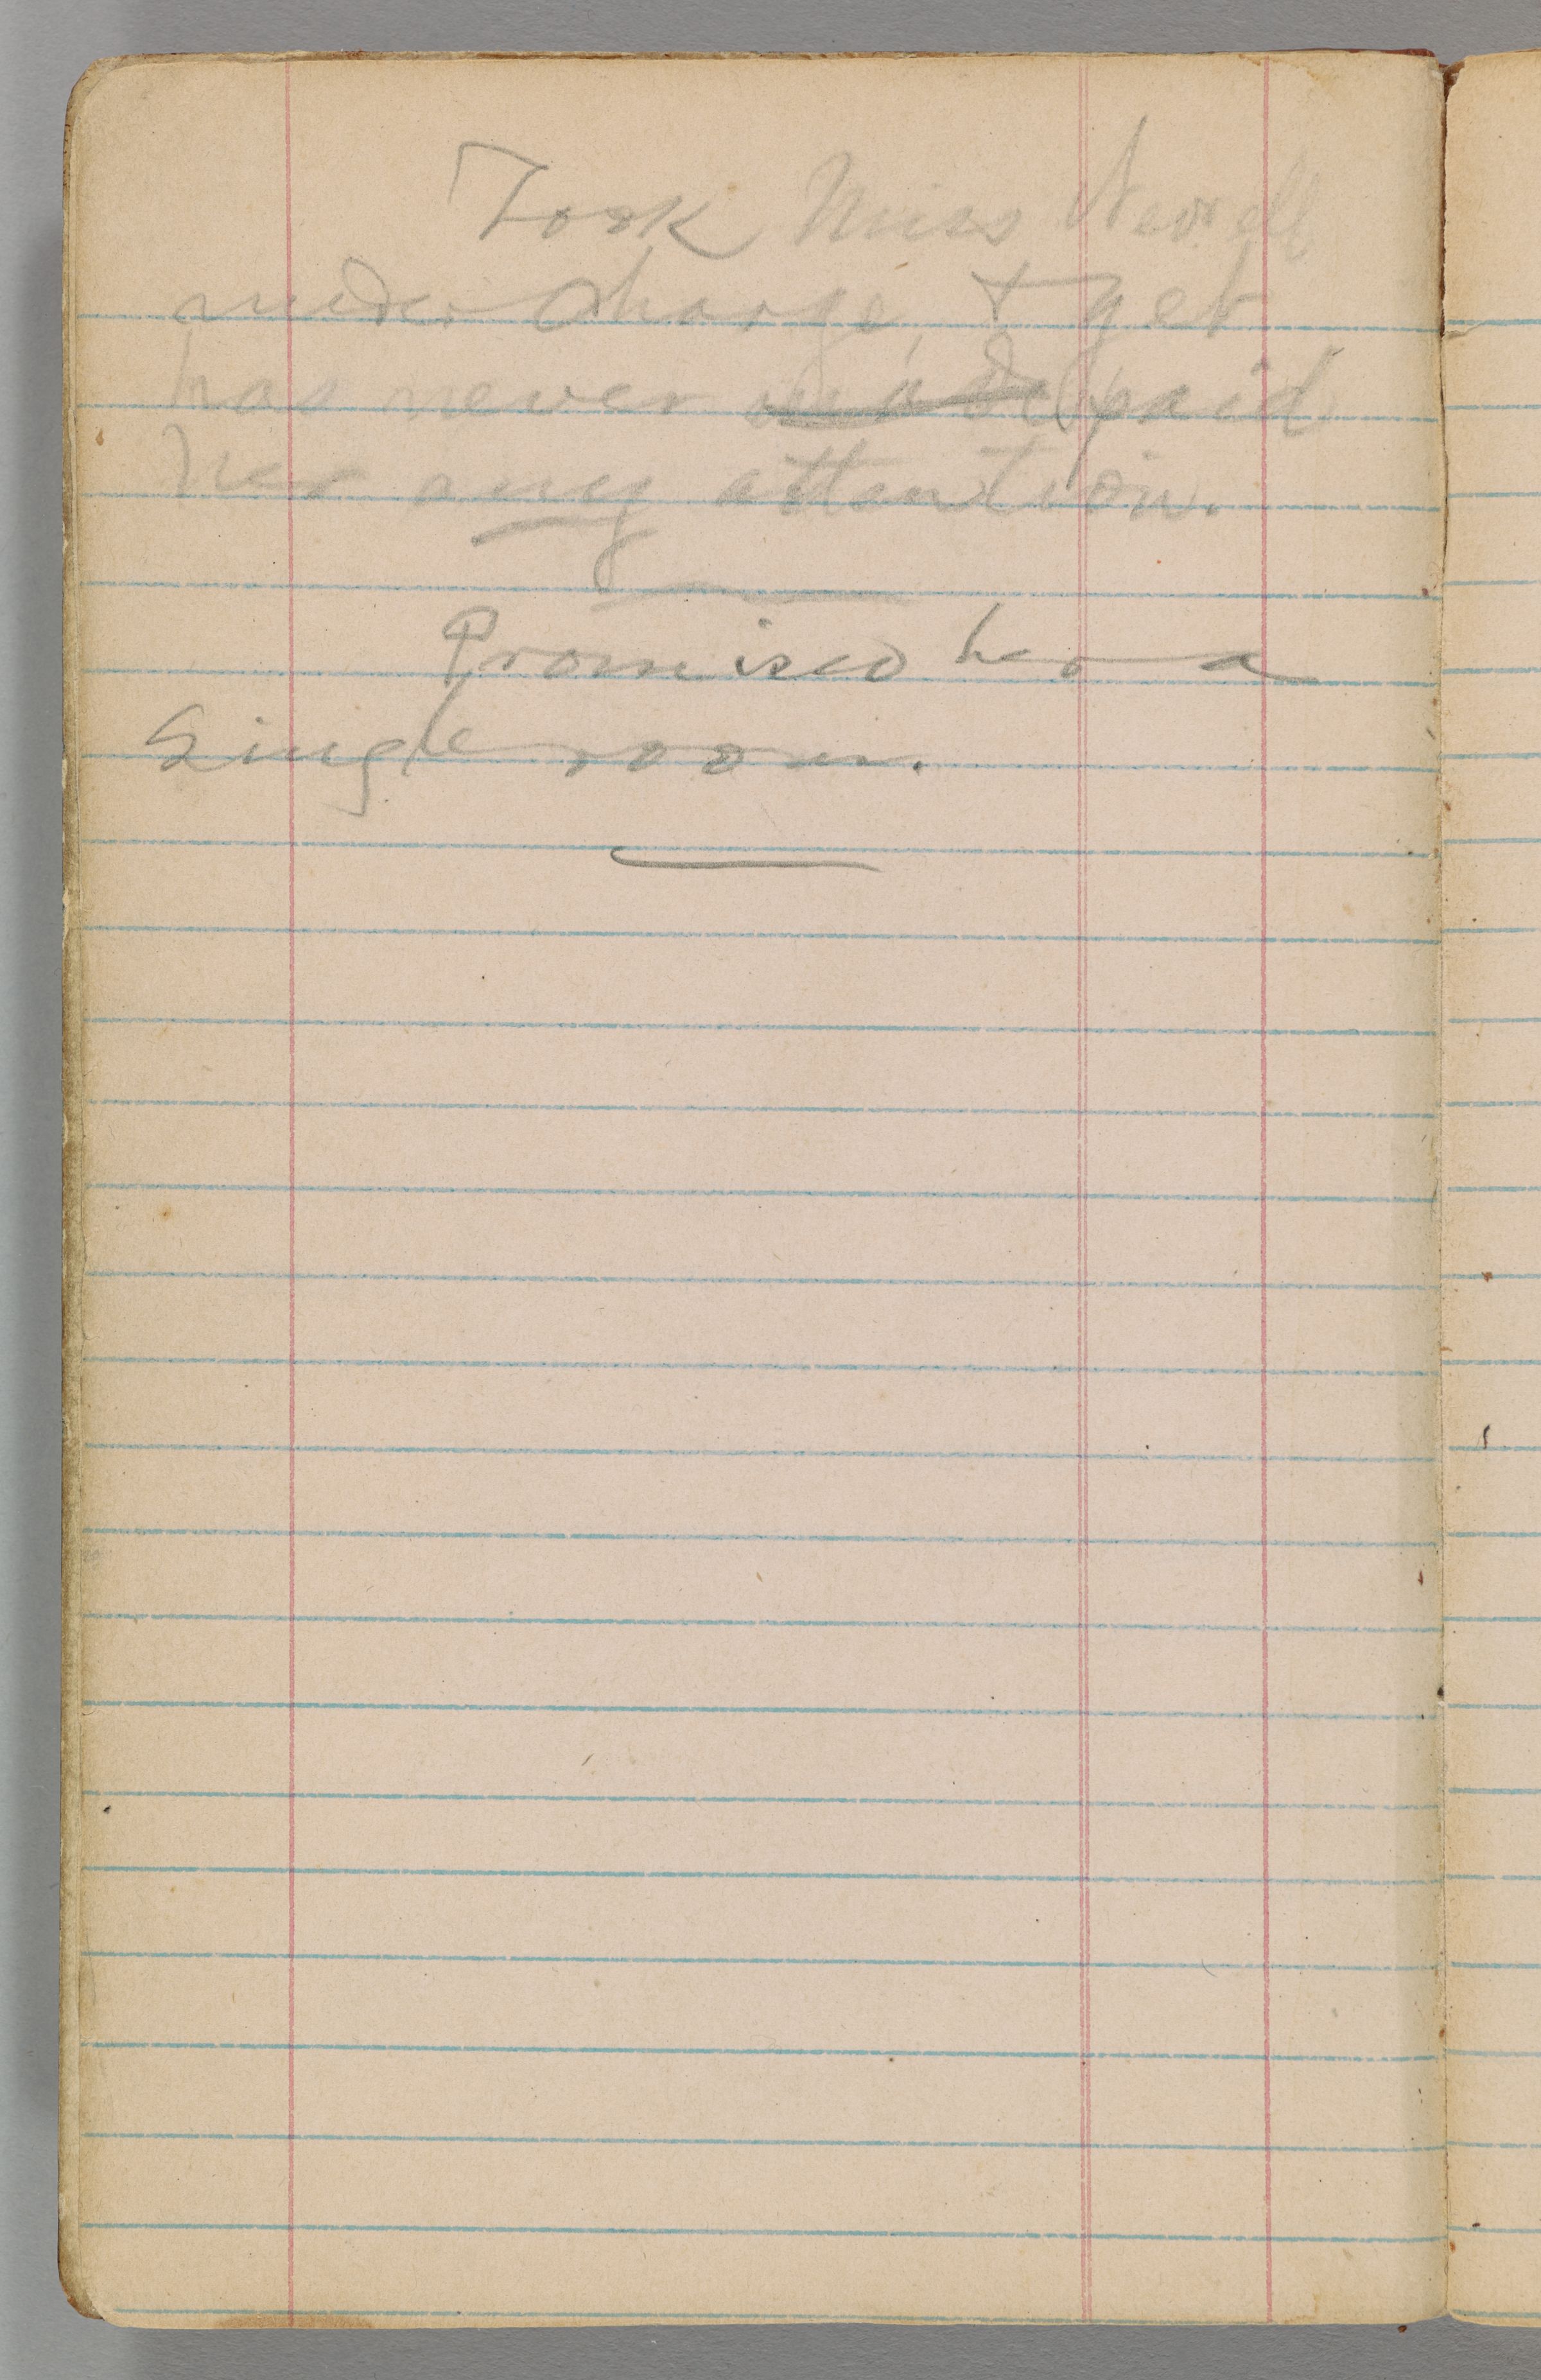 Took Miss Newell
under charge, & yet
has never made paid
her any attention.
Promised her a
Single room.